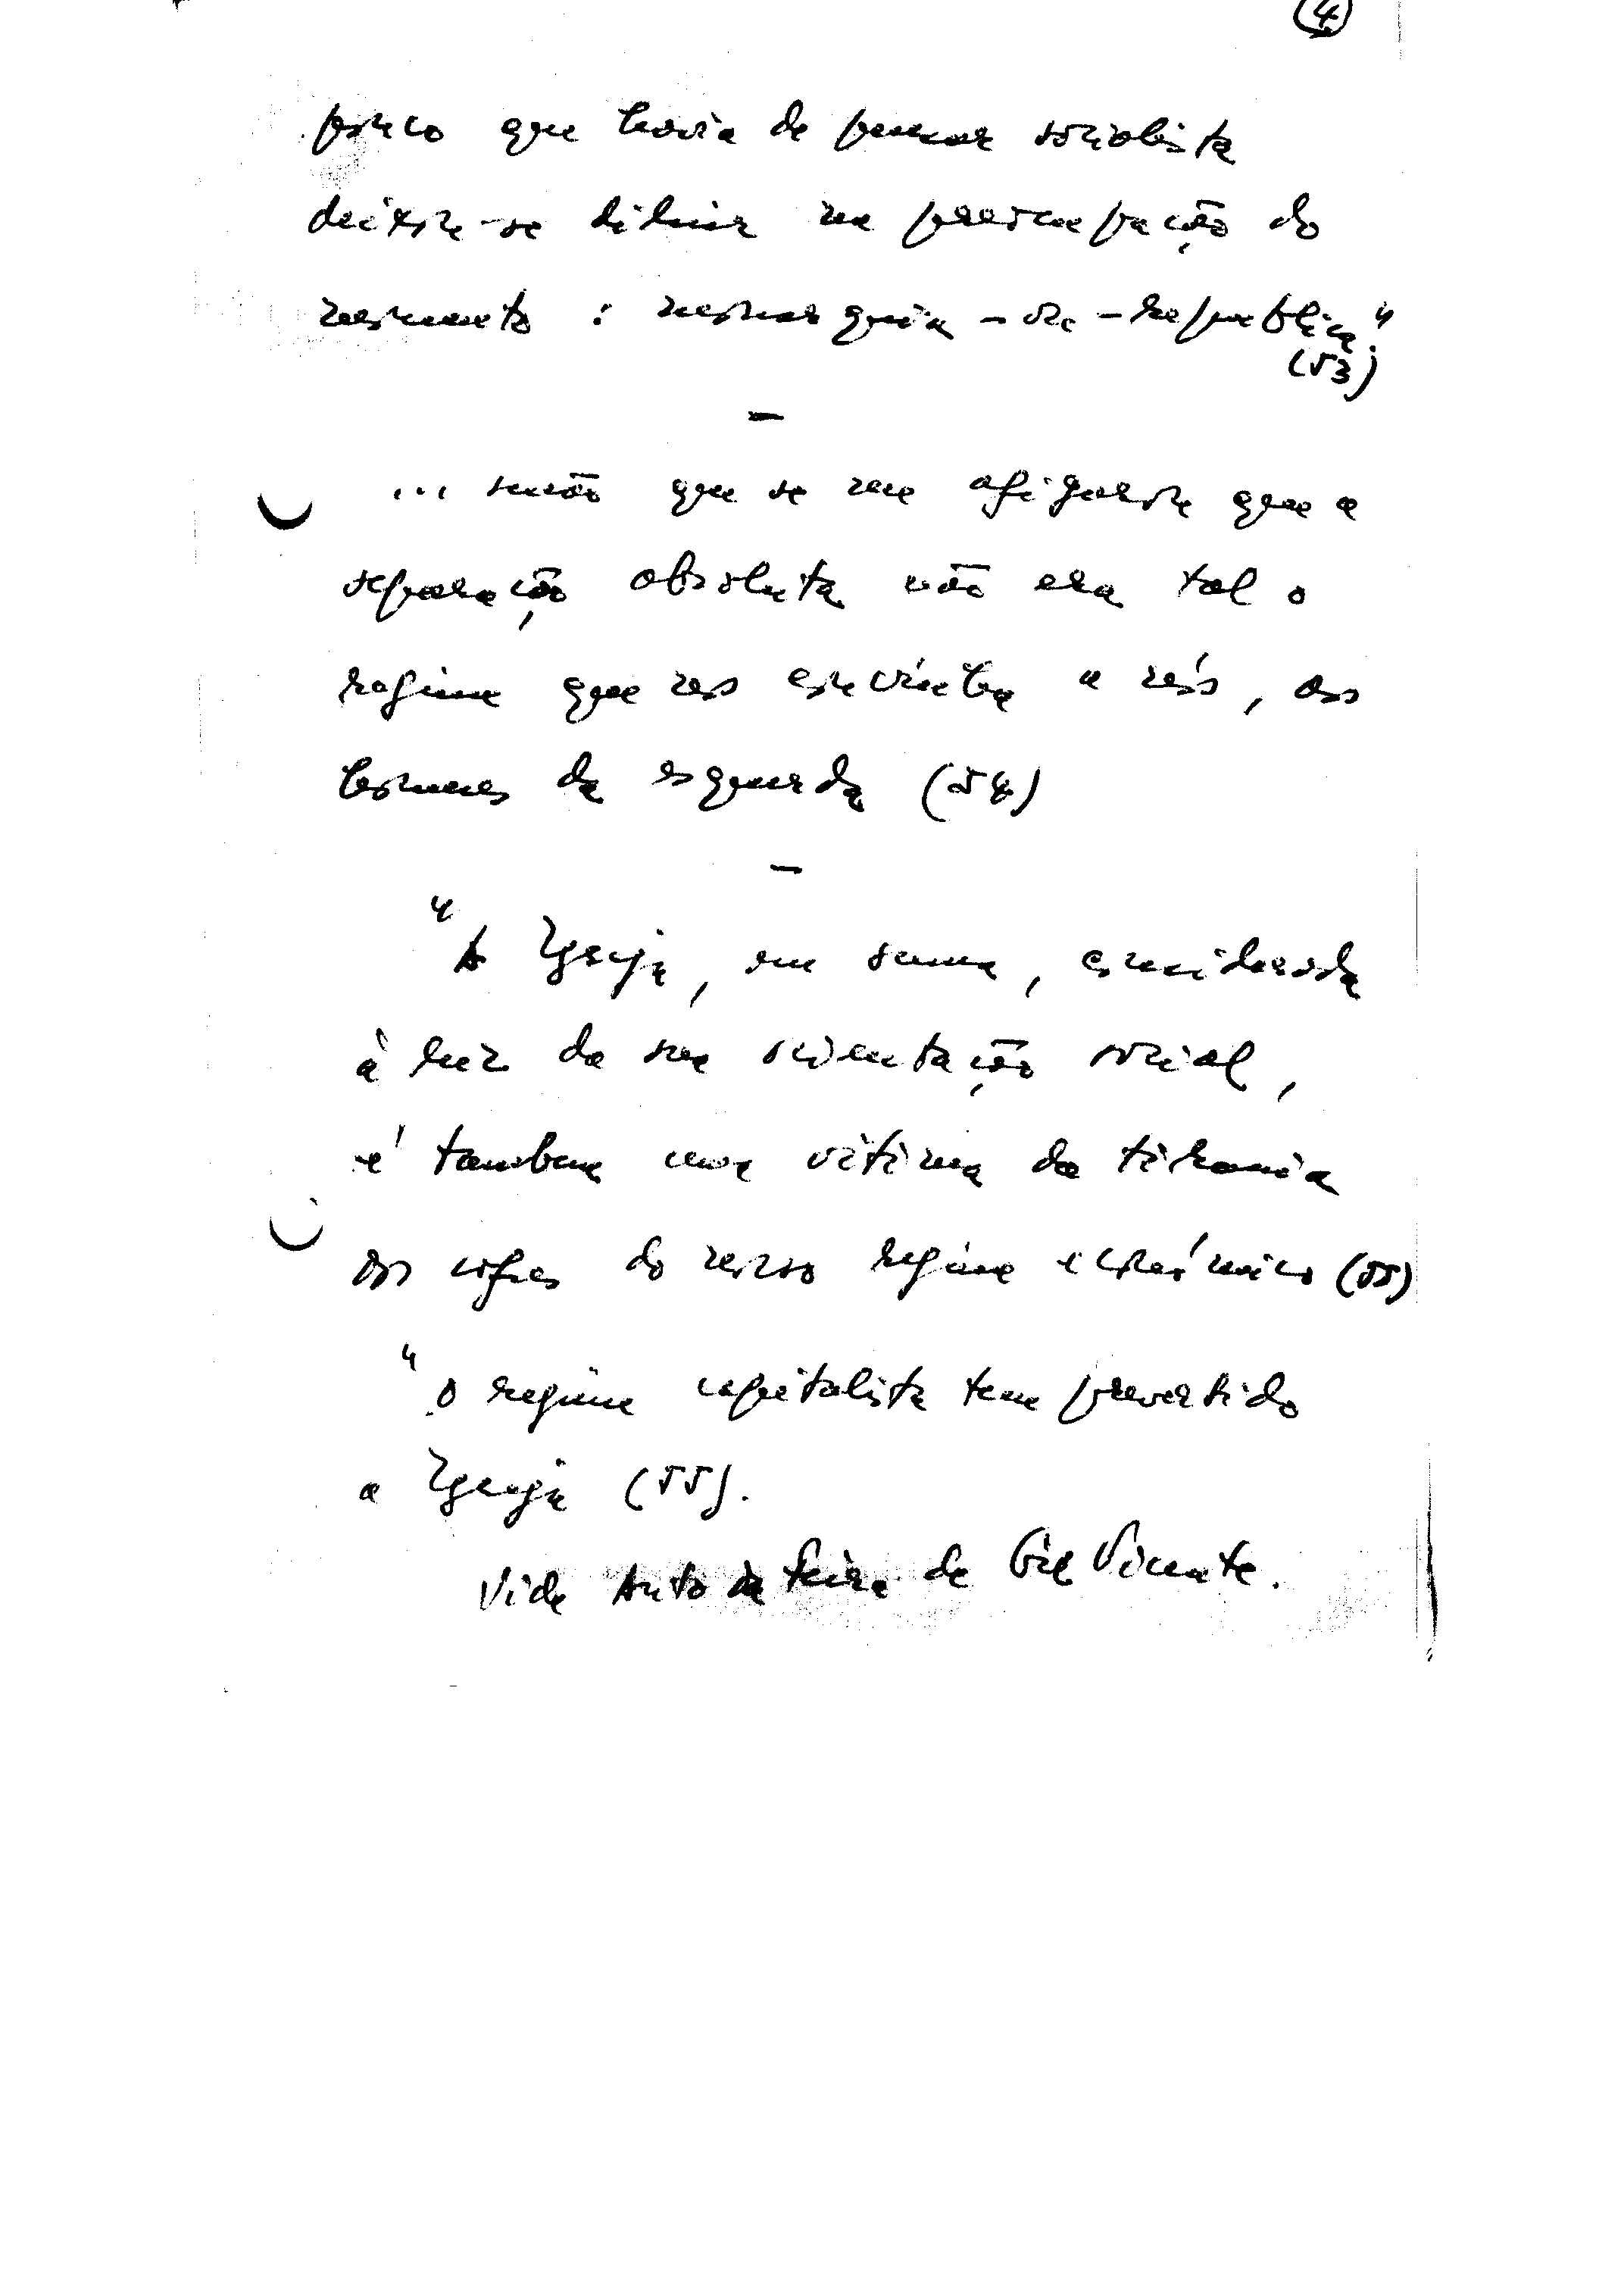 (4)
pouco que havia de pensar socialista
deixou-se diluir na preocupação do
momento : monarquia - ou - republica."
(53)
—
... senão que se me afigurou que a
separação absoluta não era tal o
regime que nos convinha a nós, aos
homens da esquerda (54)
—
"A Igreja, em suma, considerada
à luz da sua orientação social,
é tambem uma vitima da tirania
dos cofres do nosso regime económico (55)
"O regime capitalista tem pervertido
a Igreja (55).
Vide Auto da Feira de Gil Vicente.